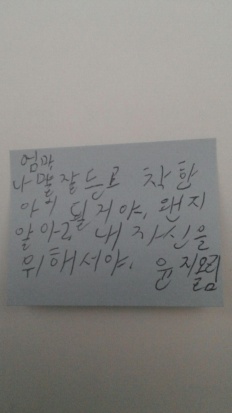 엄마
나 말 잘 듣는 착한
아이 될 거야. 왠지
알아? 내 자신을
위해서야. 윤